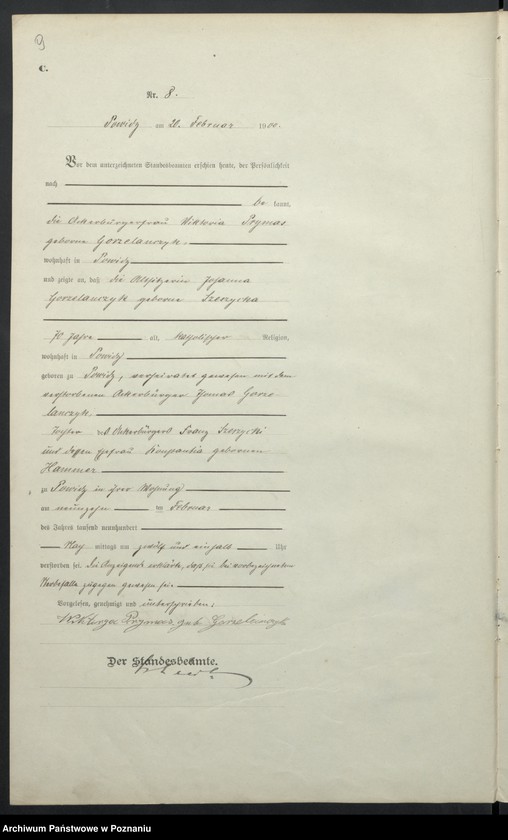 9
C.
Nr. 8.
Powidz am 20. Februar 1900.
Vor dem unterzeichneten Standesbeamten erschien heute, der Persönlichkeit
nach
be kannt,
die Ackerbürgerfrau Viktoria Prymas
geborne Gorzelanczyk,
wohnhaft in Powidz
und zeigte an, daß die Altsitzerin Josanna
Gorzelanczyk geborne Szczycka
70 Jahre alt, katholischer Religion,
wohnhaft in Powidz
geboren zu Powidz, verheiratet gewesen mit dem
verstorbenen Ackerbürger Thomas Gorze-
lanczyk,
Tochter des Ackerbürgers Franz Szczycki
und dessen Ehefrau Konstantia gebornen
Hammer
zu Powidz in ihrer Wohnung
am neunzehn ten Februar
des Jahres tausend neunhundert
Nach mittags um zwölf und einhalb Uhr
verstorben sei. Die Anzeigende erklärte, daß sie bei vorbezeichneten
Sterbefalle zugegen gewesen sei.
Vorgelesen, genehmigt und unterschrieben:
Prymas geb Gorzelanczyk
Der Standesbeamte.
Archiwum Państwowe w Poznaniu